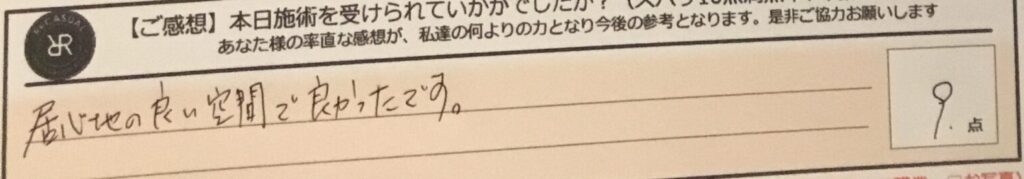 【ご感想】本日施術を受けられていかがでしたか？
あなた様の率直な感想が、私達の何よりの力となり今後の参考となります。是非ご協力お願いします
居心地の良い空間で良かったです。
9.
点